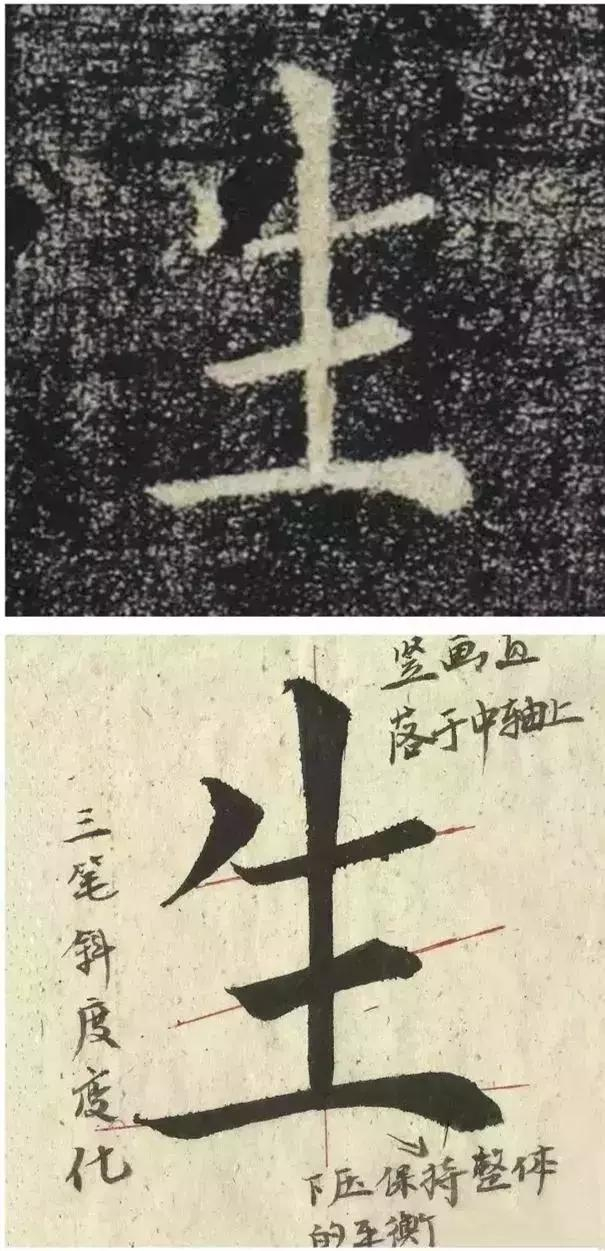 生
竖画且
落于中轴上
三笔斜度变化
生
下压保持整体
的平衡